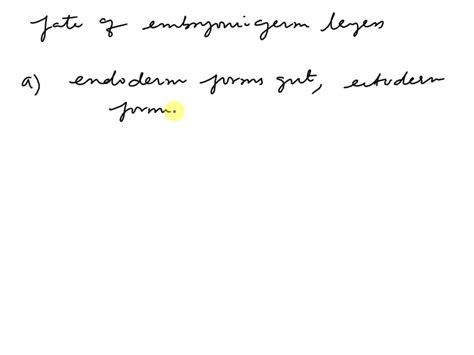 fate of embryonic germ layers
a) endoderm forms gut, ectoderm
form